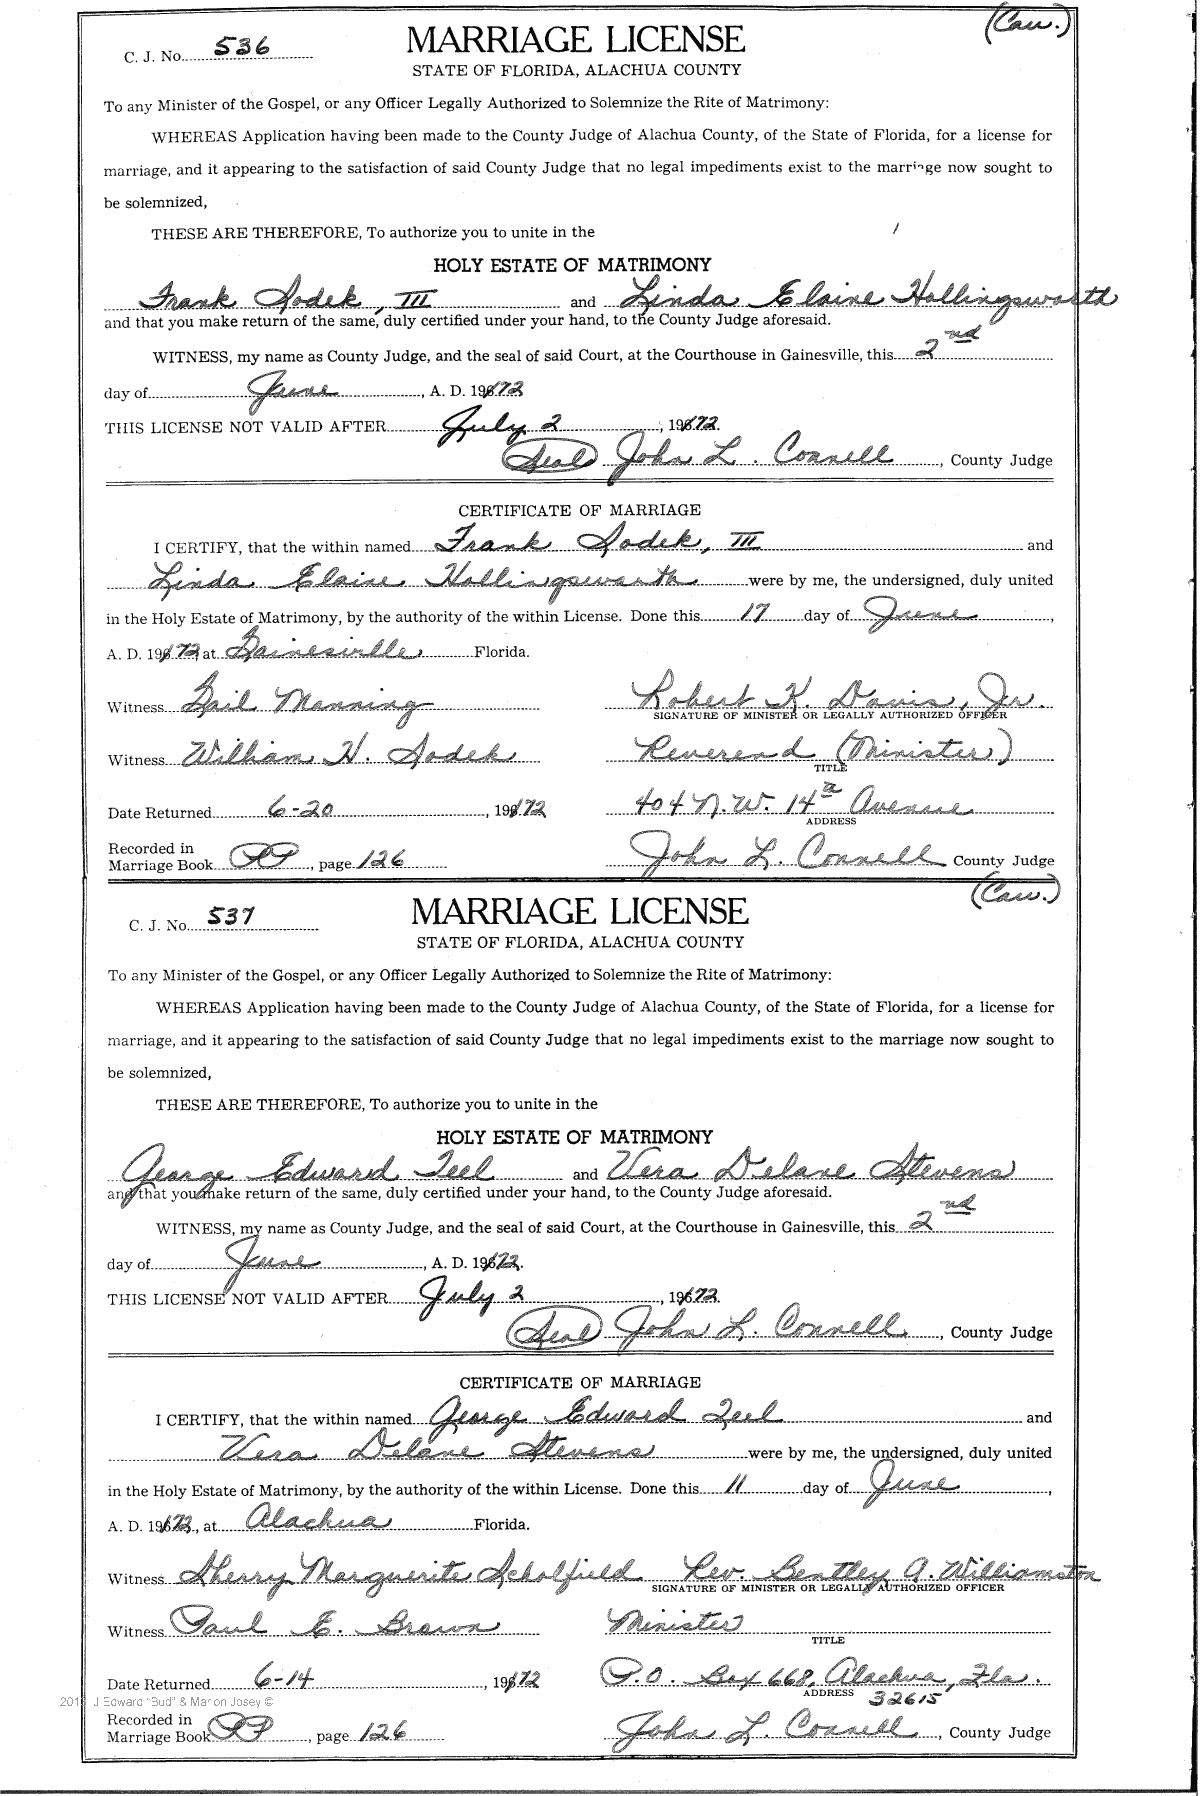 (Cau.)
C. J. No. 536 MARRIAGE LICENSE
STATE OF FLORIDA, ALACHUA COUNTY
To any Minister of the Gospel, or any Officer Legally Authorized to Solemnize the Rite of Matrimony:
WHEREAS Application having been made to the County Judge of Alachua County, of the State of Florida, for a license for
marriage, and it appearing to the satisfaction of said County Judge that no legal impediments exist to the marriage now sought to
be solemnized,
THESE ARE THEREFORE, To authorize you to unite in the
HOLY ESTATE OF MATRIMONY
Frank Sodek, III and Linda Elaine Hollingsworth
and that you make return of the same, duly certified under your hand, to the County Judge aforesaid.
WITNESS, my name as County Judge, and the seal of said Court, at the Courthouse in Gainesville, this 2nd
day of June, A. D. 1972
THIS LICENSE NOT VALID AFTER July 2, 1972.
(Seal) John L. Connell, County Judge
CERTIFICATE OF MARRIAGE
I CERTIFY, that the within named Frank Sodek, III and
Linda Elaine Hollingsworth were by me, the undersigned, duly united
in the Holy Estate of Matrimony, by the authority of the within License. Done this 17 day of June,
A. D. 1972, at Gainesville Florida.
Witness Gail Manning Robert K. Davis, Jr.
SIGNATURE OF MINISTER OR LEGALLY AUTHORIZED OFFICER
Witness William H. Sodek Reverend (Minister)
TITLE
Date Returned 6-20, 1972 404 N.W. 14th Avenue
ADDRESS
Recorded in
Marriage Book PP, page 126 John L. Connell County Judge
(Cau.)
C. J. No. 537 MARRIAGE LICENSE
STATE OF FLORIDA, ALACHUA COUNTY
To any Minister of the Gospel, or any Officer Legally Authorized to Solemnize the Rite of Matrimony:
WHEREAS Application having been made to the County Judge of Alachua County, of the State of Florida, for a license for
marriage, and it appearing to the satisfaction of said County Judge that no legal impediments exist to the marriage now sought to
be solemnized,
THESE ARE THEREFORE, To authorize you to unite in the
HOLY ESTATE OF MATRIMONY
George Edward Teel and Vera Delane Stevens
and that you make return of the same, duly certified under your hand, to the County Judge aforesaid.
WITNESS, my name as County Judge, and the seal of said Court, at the Courthouse in Gainesville, this 2nd
day of June, A. D. 1972.
THIS LICENSE NOT VALID AFTER July 2, 1972.
(Seal) John L. Connell, County Judge
CERTIFICATE OF MARRIAGE
I CERTIFY, that the within named George Edward Teel and
Vera Delane Stevens were by me, the undersigned, duly united
in the Holy Estate of Matrimony, by the authority of the within License. Done this 11 day of June,
A. D. 1972, at Alachua Florida.
Witness Sherry Marguerite Scholfield Rev. Bentley A. Williamston
SIGNATURE OF MINISTER OR LEGALLY AUTHORIZED OFFICER
Witness Paul E. Brown Minister
TITLE
Date Returned 6-14, 1972 P.O. Box 668, Alachua, Fla.
ADDRESS 32615
J Edward "Bud" & Marion Josey ©
Recorded in
Marriage Book PP, page 126 John L. Connell, County Judge